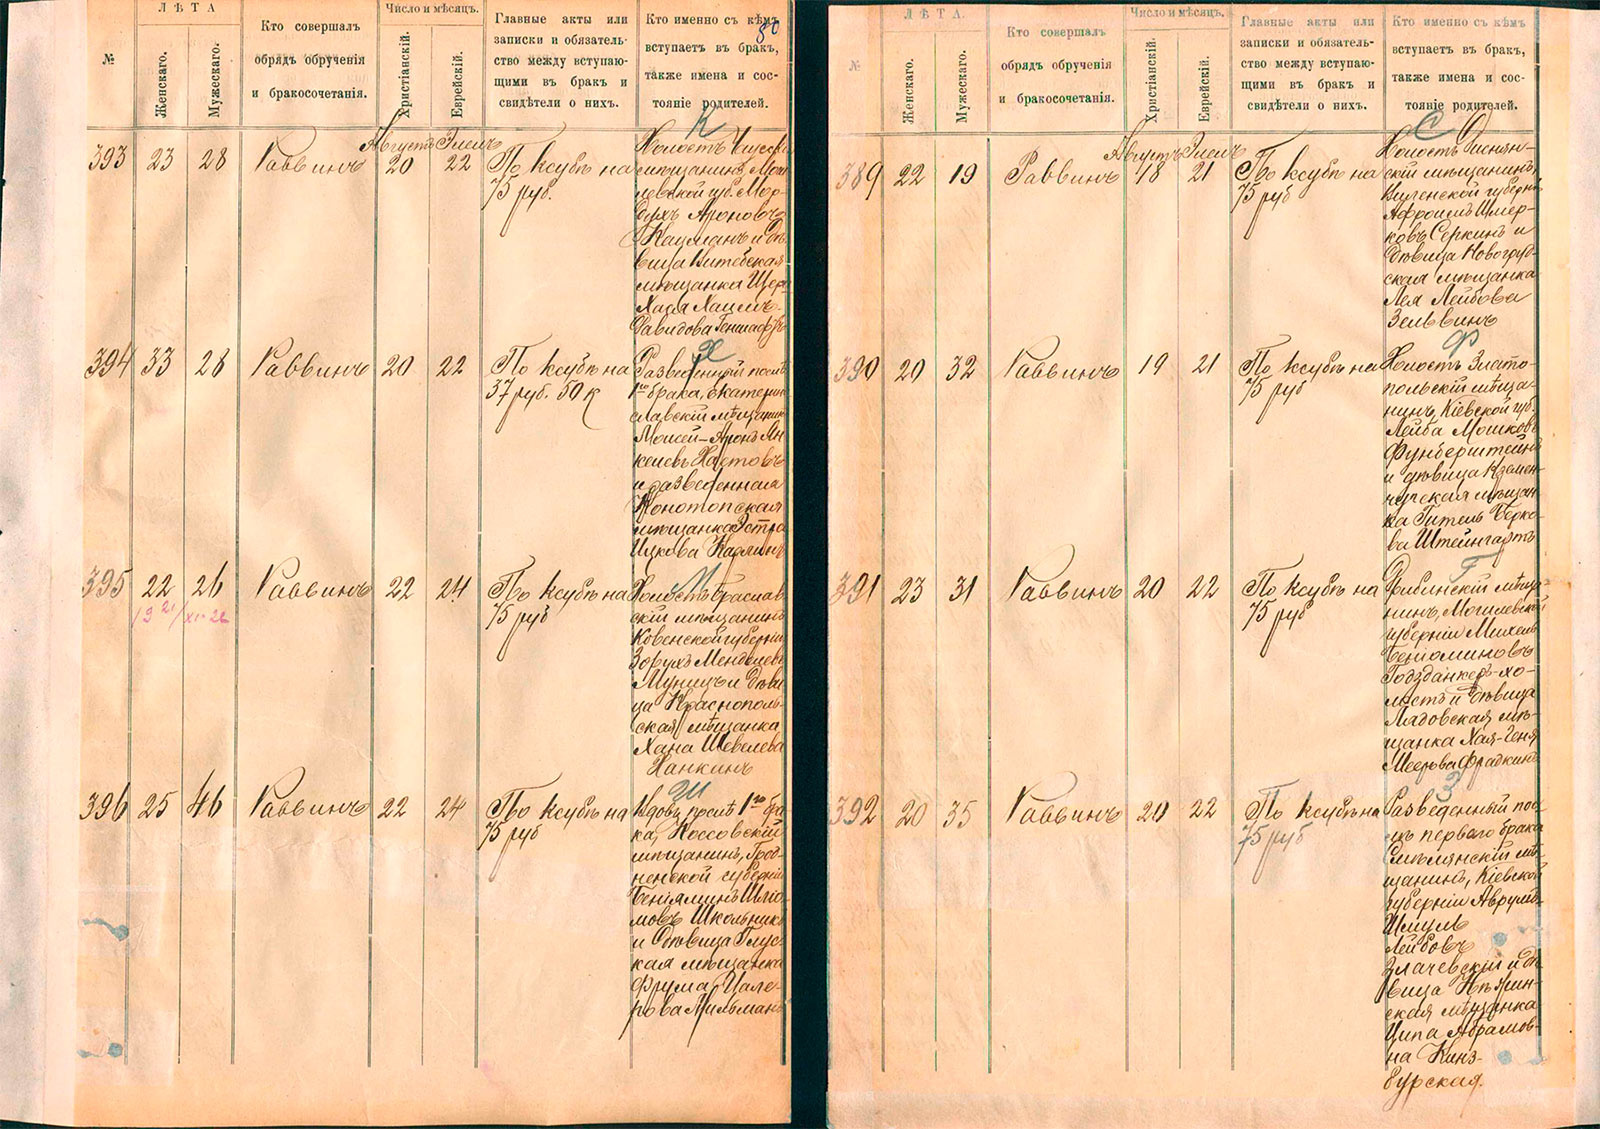 №
ЛѢТА
Женскаго.
Мужескаго.
Кто совершалъ
обрядъ обрученія
и бракосочетанія.
Число и мѣсяцъ.
Христіанскій.
Еврейскій.
Главные акты или
записки и обязатель-
ство между вступаю-
щими въ бракъ и
свидѣтели о нихъ.
Кто именно съ кѣмъ
вступаетъ въ бракъ,
также имена и сос-
тояніе родителей.
80
К
Августъ Элелъ
393 23 28 Раввинъ 20 22 По ксубѣ на
75 руб.
Холостъ
мѣщанинъ, Моги
левской губ. Мор-
духъ Ароновъ
Кацманъ и дѣ
вица Витебская
мѣщанка
Хана Хаимъ-
Давидова
394 33 28 Раввинъ 20 22 По ксубѣ на
37 руб. 50 к
Х
Разведенный послѣ
1го брака, Екатерин
славскій мѣщанин
Моисей-Аронъ Ян
келевъ Хаетовъ
и разведенная
Конотопская
мѣщанка Эстра
Ицкова Карлинъ
395 22 26 Раввинъ 22 24 По ксубѣ на
75 руб
М
Холостъ Браслав
скій мѣщанинъ
Ковенской губерніи
Зорухъ Менделевъ
Муницъ и дѣви
ца Краснополь-
ская мѣщанка
Хана Шевелева
Ханкинъ
396 25 46 Раввинъ 22 24 По ксубѣ на
75 руб
Ш
Вдовъ послѣ 1го бра
ка, Коссовскій
мѣщанинъ, Грод-
ненской губерніи
Беніяминъ Шлио-
мовъ Школьникъ
и дѣвица Глус-
кая мѣщанка
Фрума Цале-
рова Мильманъ
№
ЛѢТА.
Женскаго.
Мужескаго.
Кто совершалъ
обрядъ обрученія
и бракосочетанія.
Число и мѣсяцъ.
Христіанскій.
Еврейскій.
Главные акты или
записки и обязатель-
ство между вступаю-
щими въ бракъ и
свидѣтели о нихъ.
Кто именно съ кѣмъ
вступаетъ въ бракъ,
также имена и сос-
тояніе родителей.
С
Августъ Элелъ
389 22 19 Раввинъ 18 21 По ксубѣ на
75 руб
Холостъ Диснян-
скій мѣщанинъ,
Виленской губерніи
Афроимъ Шмер-
ковъ Серкинъ и
дѣвица Новогруд-
ская мѣщанка
Лея Лейбова
Зельвинъ
390 20 32 Раввинъ 19 21 По ксубѣ на
75 руб
Ф
Холостъ Злато-
польскій мѣща-
нинъ, Кіевской губ.
Лейба Мошковъ
Фунберштейнъ
и дѣвица Кремен-
чугская мѣщан-
ка Гитель Берко-
ва Штейнгартъ
391 23 31 Раввинъ 20 22 По ксубѣ на
75 руб
Г
Дрибинскій мѣща-
нинъ, Могилевской
губерніи Михель
Беніоминовъ
Годзданкеръ-хо-
лостъ и дѣвица
Лядовская мѣ-
щанка Хая-Геня
Меерова Фрадкинъ
392 20 35 Раввинъ 20 22 По ксубѣ на
75 руб
З
Разведенный пос-
лѣ перваго брака
Смѣлянскій мѣ-
щанинъ, Кіевской
губерніи Аврумъ-
Шмуль
Лейбовъ
Злачевскій и дѣ
вица Нѣжин-
ская мѣщанка
Ципа Абрамов-
на Кинз-
бурская.